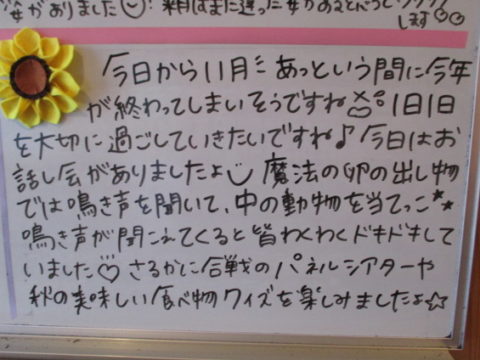 がありました
します
今日から11月 あっという間に今年
が終わってしまいそうですね 1日1日
を大切に過ごしていきたいですね♪ 今日はお
話し会がありましたよ 魔法の卵の出し物
では鳴き声を聞いて、中の動物を当てっこ**
鳴き声が聞こえてくると皆わくわくドキドキして
いました♡ さるかに合戦のパネルシアターや
秋の美味しい食べ物クイズを楽しみましたよ☆